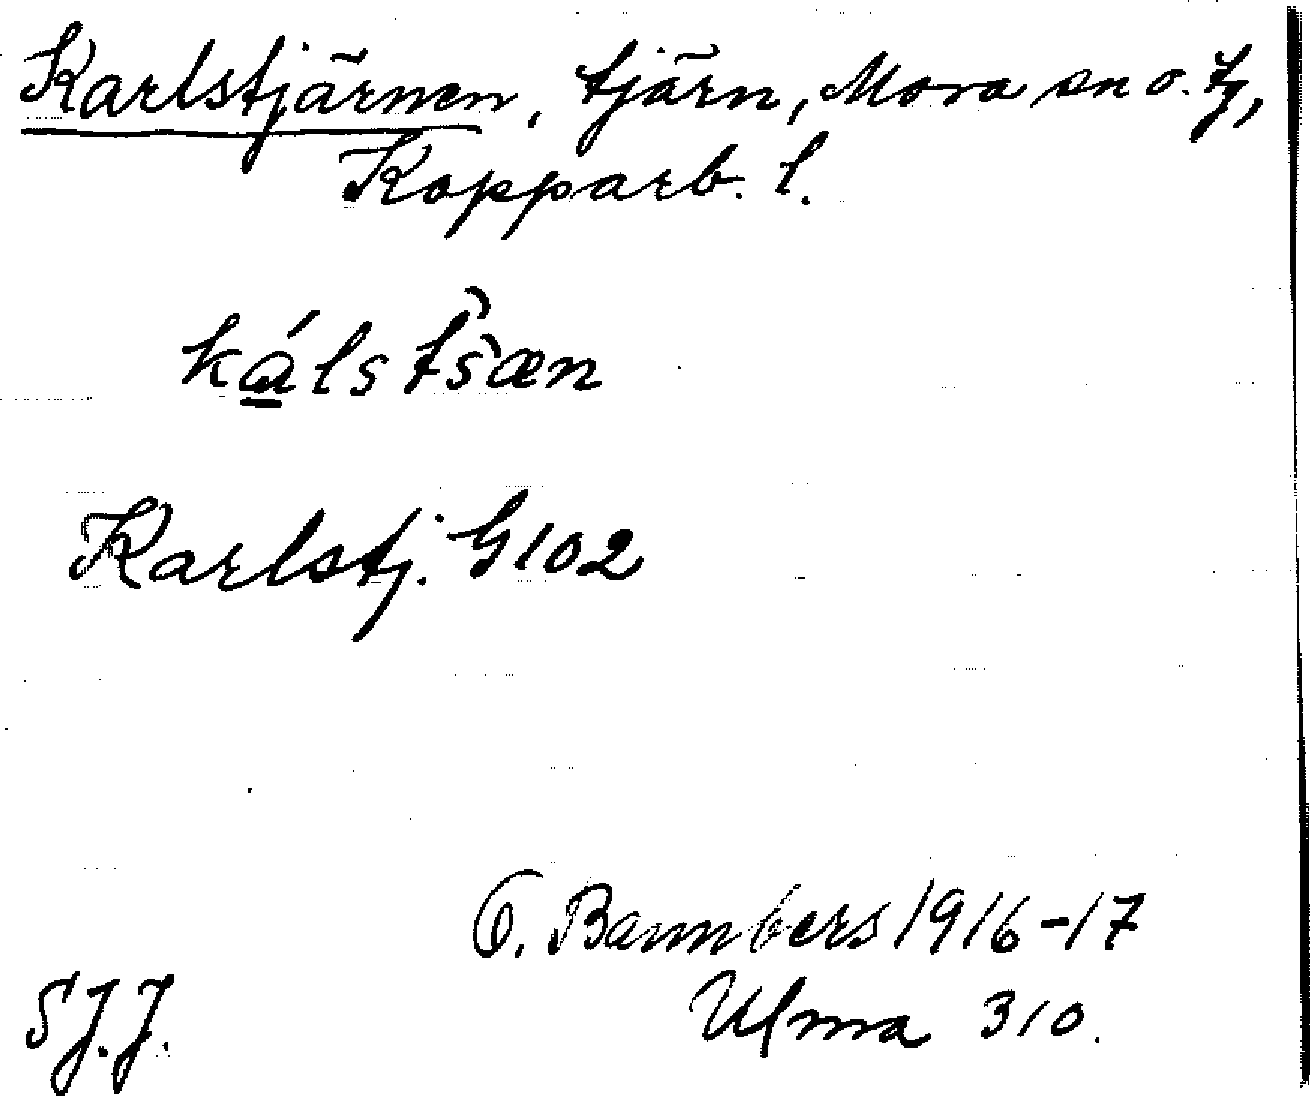 Karlstjärnen, tjärn, Mora sn o. tg,
Kopparb. l.
kálstšæn
Karlstj. G102
O. Bannbers 1916-17
Ulma 310.
SJ.J.